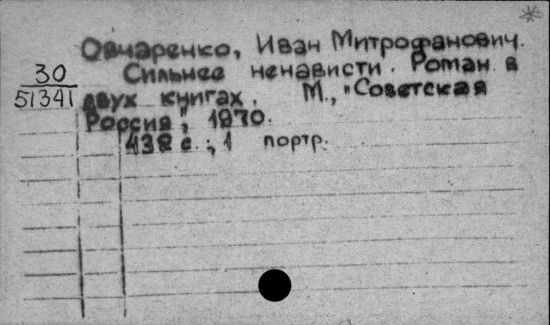 Овчаренко, Иван Митрофанович.
30
Сильнее ненависти. Роман в
51341
двух книгах. М., "Советская
Россия", 1970.
438 с.; 1 портр.